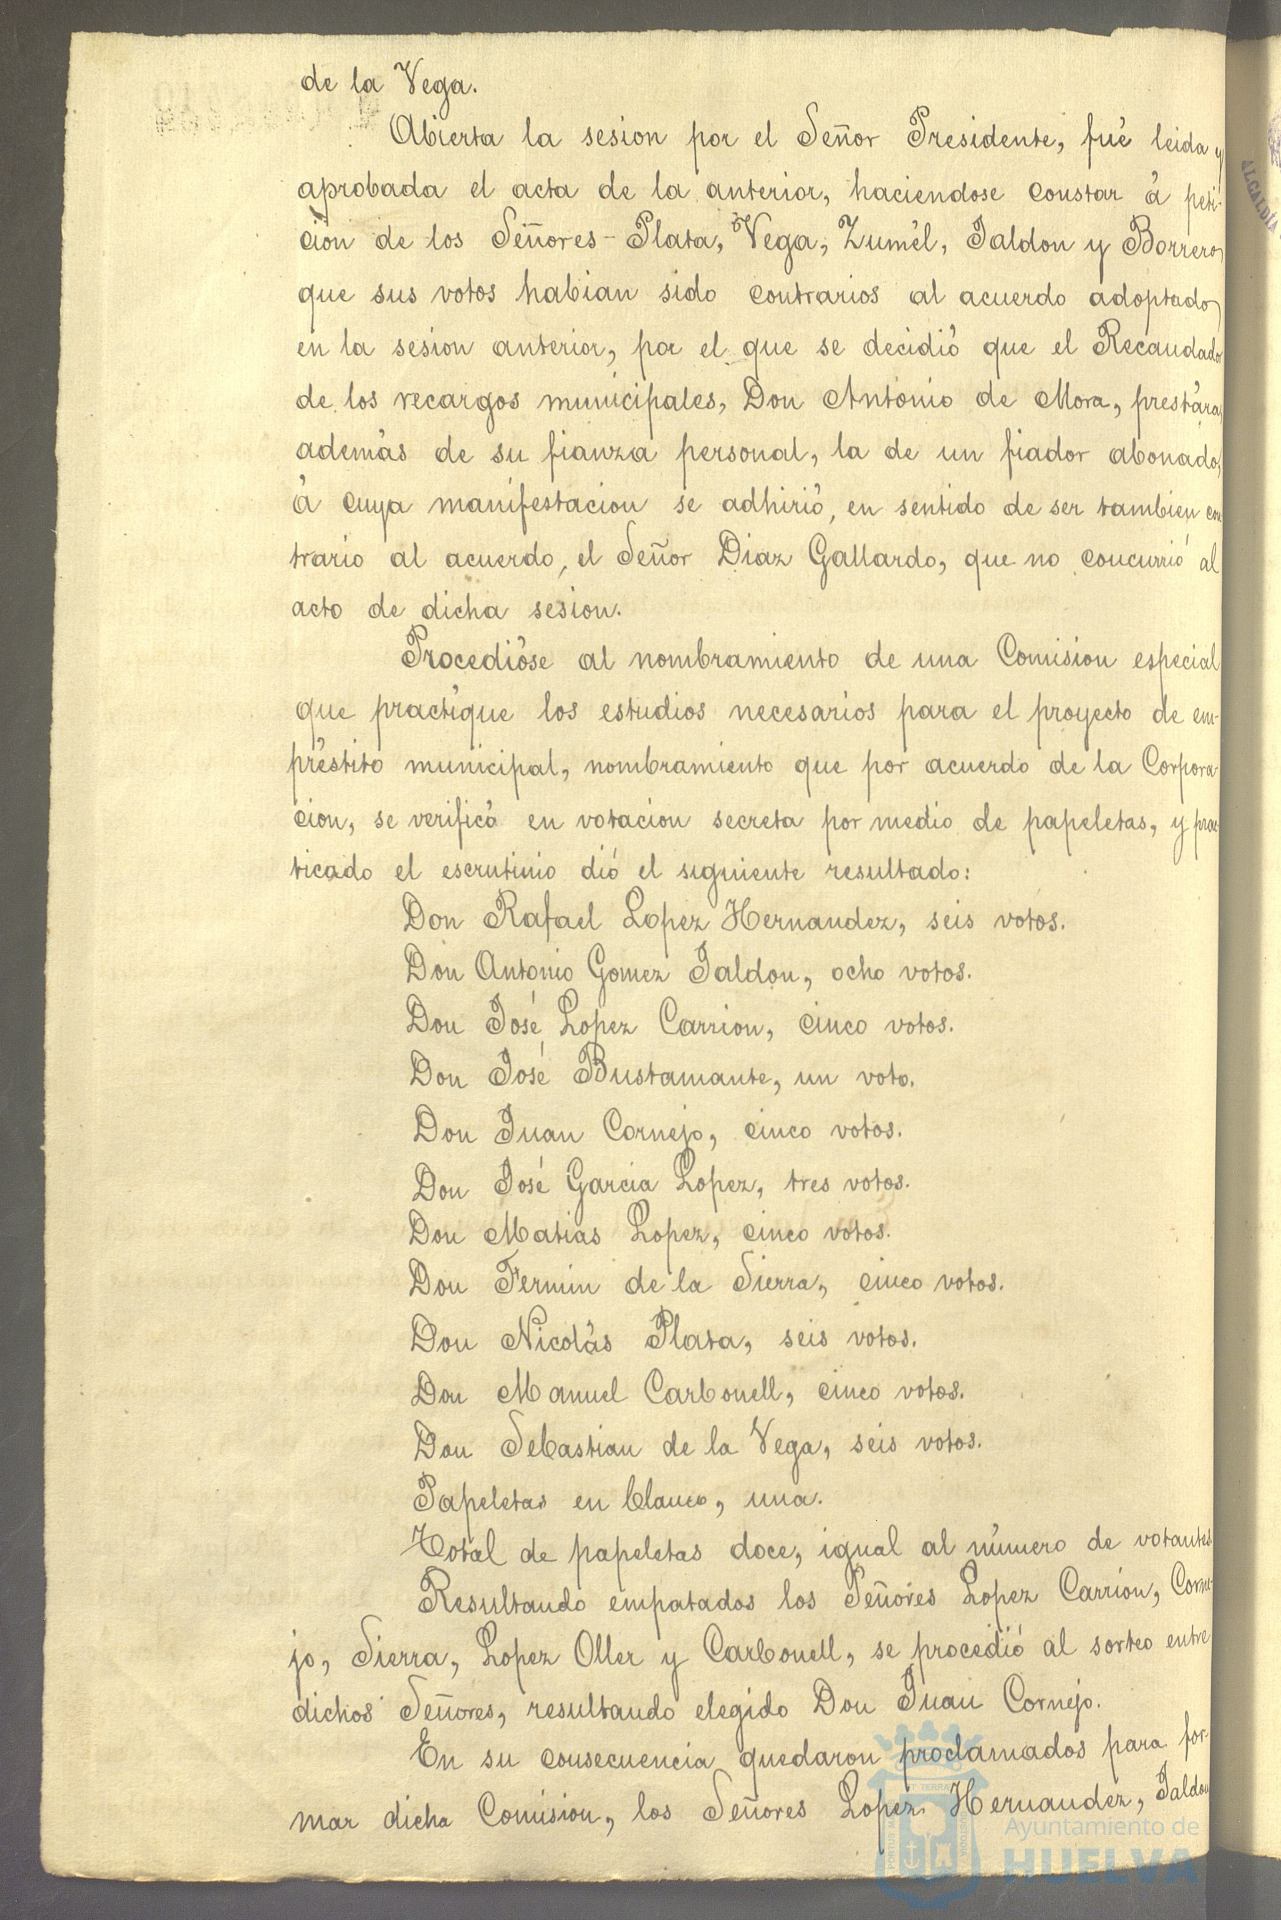 de la Vega.
Abierta la sesion por el Señor Presidente, fué leida y
aprobada el acta de la anterior, haciendose constar á peti-
cion de los Señores Plata, Vega, Zumél, Jaldon y Borrero,
que sus votos habian sido contrarios al acuerdo adoptado,
en la sesion anterior, por el que se decidió que el Recaudador
de los recargos municipales, Don Antonio de Mora, prestára,
además de su fianza personal, la de un fiador abonado,
á cuya manifestacion se adhirió, en sentido de ser tambien con
trario al acuerdo, el Señor Diaz Gallardo, que no concurrió al
acto de dicha sesion.
Procedióse al nombramiento de una Comision especial
que practíque los estudios necesarios para el proyecto de em-
préstito municipal, nombramiento que por acuerdo de la Corpora-
cion, se verificó en votacion secreta por medio de papeletas, y prac
ticado el escrutinio dió el siguiente resultado:
Don Rafael Lopez Hernandez, seis votos.
Don Antonio Gomez Jaldon, ocho votos.
Don José Lopez Carrion, cinco votos.
Don José Bustamante, un voto.
Don Juan Cornejo, cinco votos.
Don José Garcia Lopez, tres votos.
Don Matias Lopez, cinco votos.
Don Fermin de la Sierra, cinco votos.
Don Nicolás Plata, seis votos.
Don Manuel Carbonell, cinco votos.
Don Sebastian de la Vega, seis votos.
Papeletas en blanco, una.
Total de papeletas doce, igual al número de votantes.
Resultando empatados los Señores Lopez Carrion, Corne-
jo, Sierra, Lopez Oller y Carbonell, se procedió al sorteo entre
dichos Señores, resultando elegido Don Juan Cornejo.
En su consecuencia quedaron proclamados para for-
mar dicha Comision, los Señores Lopez Hernandez, Jaldon
Ayuntamiento de
HUELVA
ALCALDÍA